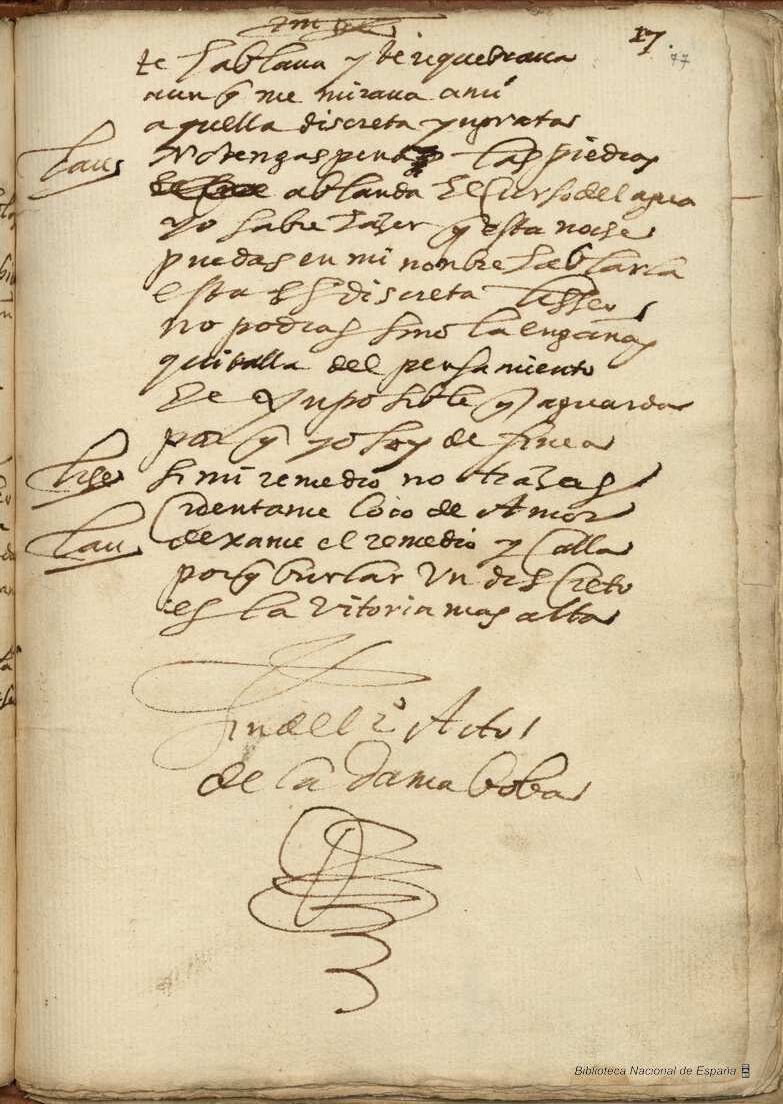 17
77
te hablaua y te requebraua
aunq me miraua a mi
aquella discreta yngrata
Lau No tengas pena las piedras
ablanda el curso del agua
yo sabre hazer q esta noche
puedas en mi nonbre hablarla
esta es discreta Lisseo
no podras sino la engañas
quitalla del pensamiento
el ynposible q aguarda
porq yo soy de finea
Lise si mi remedio no trazas
cuentame loco de Amor
Lau dexame el remedio y calla
porq burlar Vn discreto
es la Vitoria mas alta
fin del 2º Acto
de la Dama boba
Biblioteca Nacional de España